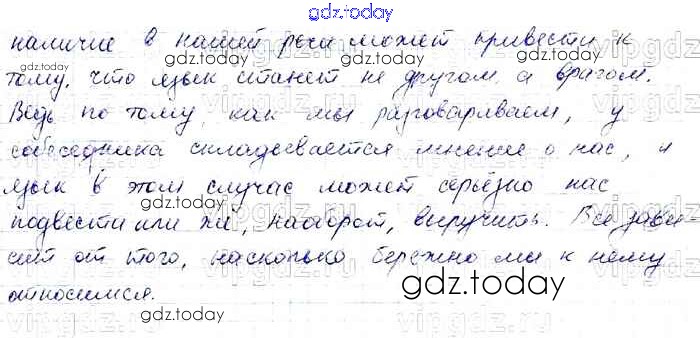 gdz.today
наличие в нашей речи может привести к
тому, что язык станет не другом а врагом.
Ведь по тому, как мы разговариваем, у
собеседника складывается мнение о нас, и
язык в этом случае может серьёзно нас
подвести или же, наоборот, выручить. Все зави-
сит от того, насколько бережно мы к нему
относимся.
gdz.today
gdz.today
gdz.today
gdz.today
gdz.today
gdz.today
vipgdz.ru
vipgdz.ru
vipgdz.ru